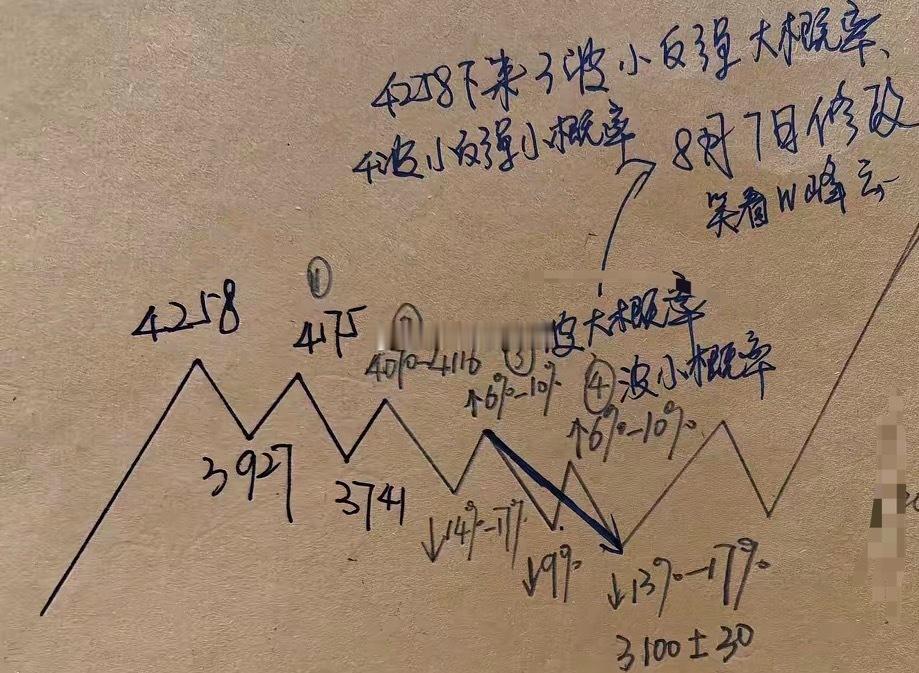 4258下来3波小反弹大概率、
4波小反弹小概率
8月7日修改
笑看W峰云
4258
①
4175
4070-4116
③波大概率
↑6%-10%
④波小概率
↑6%-10%
3927
3741
↓14%-17%
↓9%
↓13%-17%
3100±30